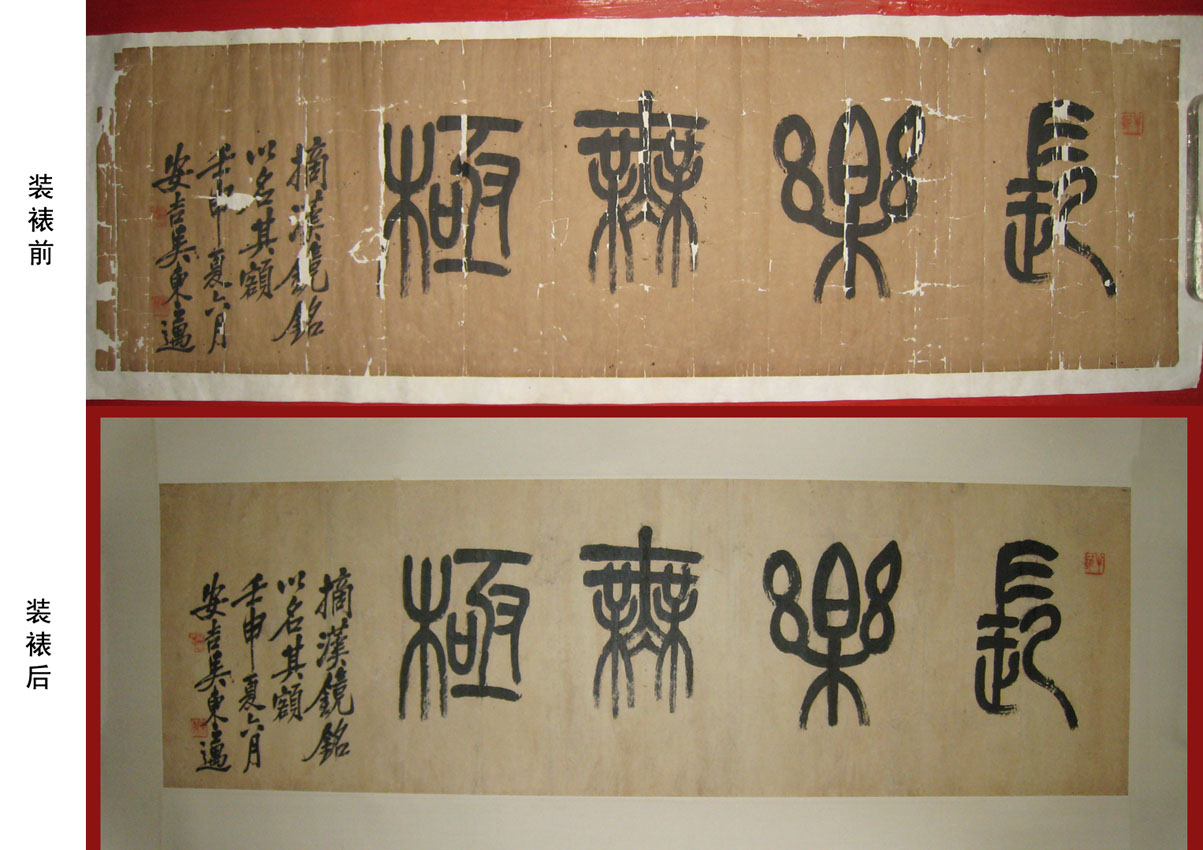 装裱前
長樂無極
摘漢鏡銘
以名其額
壬申夏六月
安吉吳東邁
装裱后
長樂無極
摘漢鏡銘
以名其額
壬申夏六月
安吉吳東邁